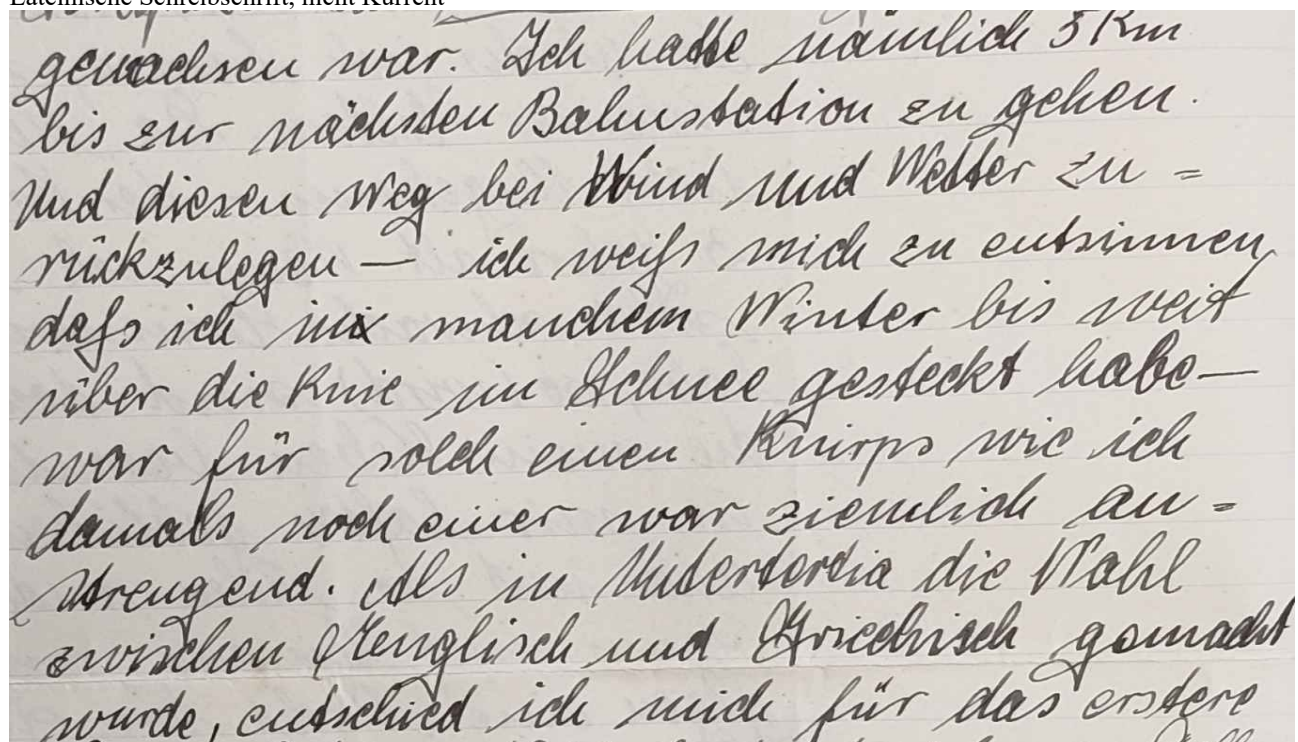 Lateinische Schreibschrift, nicht Kurrent
gewachsen war. Ich hatte nämlich 3 Km
bis zur nächsten Bahnstation zu gehen.
Und diesen Weg bei Wind und Wetter zu =
rückzulegen — ich weiß mich zu entsinnen,
daß ich in manchem Winter bis weit
über die Knie im Schnee gesteckt habe—
war für solch einen Knirps wie ich
damals noch einer war ziemlich an =
strengend. Als in Untertertia die Wahl
zwischen Englisch und Griechisch gemacht
wurde, entschied ich mich für das erstere